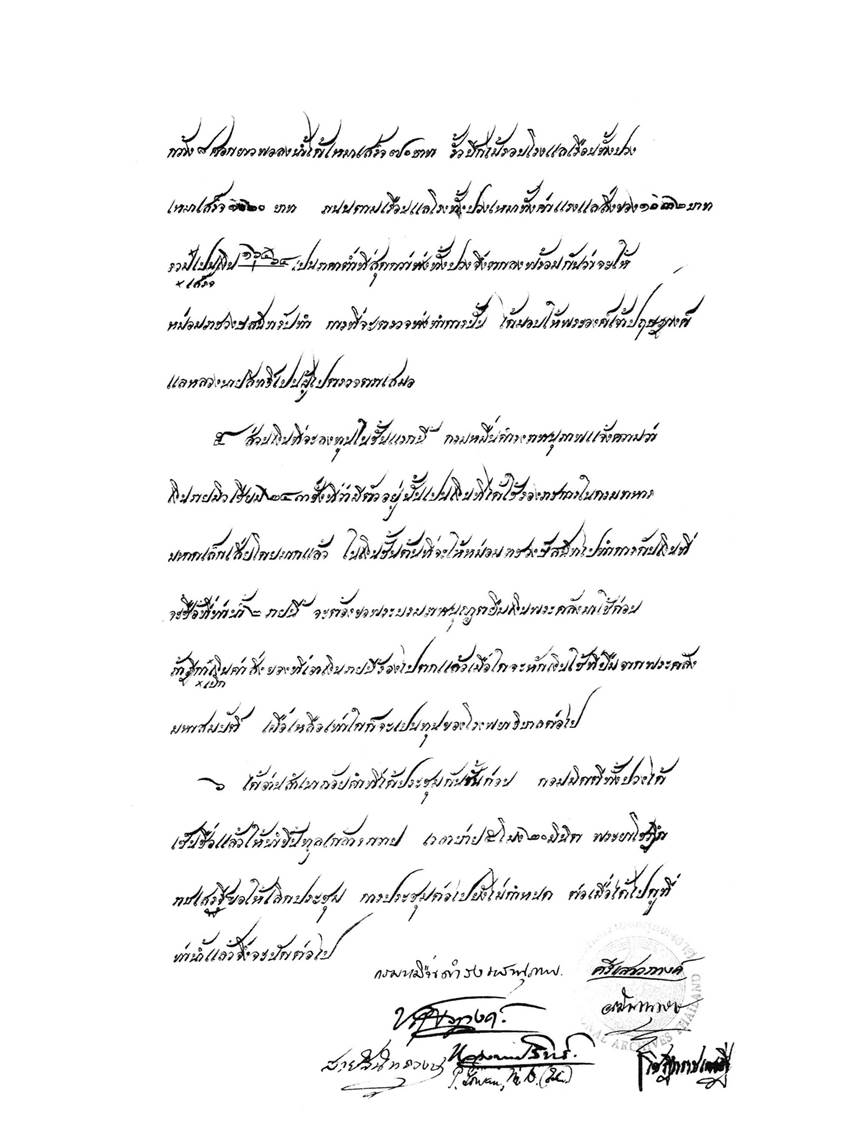 กว้าง ๘ ศอกยาวพอลงน้ำได้เหมาเสร็จ ๗๐ บาท รั้วปีกไม้รอบโรงแลเรือนทั้งปวง
เหมาเสร็จ บาท ถนนตามเรือนแลโรงทั้งปวงเหมาทั้งค่าแรงแลสิ่งของ บาท
รวมเปนเงิน เปนราคาต่ำที่สุดกว่าห้างทั้งปวง จึงตกลงพร้อมกันว่าจะให้
× เสร็จ
หม่อมราชวงษสนิทรับทำ การที่จะตรวจห้างทำการนั้น ได้มอบให้พระองค์เจ้าปฤษฎางค์
แลหลวงนายสิทธิ์เปนผู้ไปตรวจตราเสมอ
๕ ส่วนเงินที่จะลงทุนในชั้นแรกนี้ กรมหมื่นดำรงราชานุภาพแจ้งความว่า
เงินรายมิวเซียม ชั่งที่ว่ามีตัวอยู่นั้นเปนเงินที่ได้ใช้รองราชการในกรมทหาร
มหาดเล็กเสียโดยมากแล้ว ในเงินชั้นต้นที่จะให้หม่อมราชวงษสนิทไปทำการกับเงินที่
จะซื้อที่ท่าน้ำ ๒ รายนี้ จะต้องขอพระบรมราชานุญาตยืมเงินพระคลังมาใช้ก่อน
ถ้าฎีกาเงินค่าสิ่งของที่เอาเงินรายนี้รองไปตกแล้วเมื่อใด จะหักเงินใช้ที่ยืมจากพระคลัง
× เบิก
มหาสมบัติ เมื่อเหลือเท่าใดก็จะเปนทุนของโรงพยาธิบาลต่อไป
๖ ได้อ่านสำเนารายงานที่ได้ประชุมกันชั้นก่อน กอมมิตตีทั้งปวงได้
เซนชื่อแล้วให้นำขึ้นทูลเกล้าฯ ถวาย เวลาบ่าย ๕ โมง ๒๐ มินิต พระยาโชฎึก
ราชเศรษฐีขอให้เลิกประชุม การประชุมต่อไปยังไม่กำหนด ต่อเมื่อได้ไปดูที่
ท่าน้ำแล้วจึงจะนัดต่อไป
กรมหมื่นดำรงราชานุภาพ. ศรีเสาวภางค์
สายสนิทวงษ
P. Gowan, M.D. (Edin.)
โชฎึกราชเศรษฐี
NATIONAL ARCHIVES THAILAND